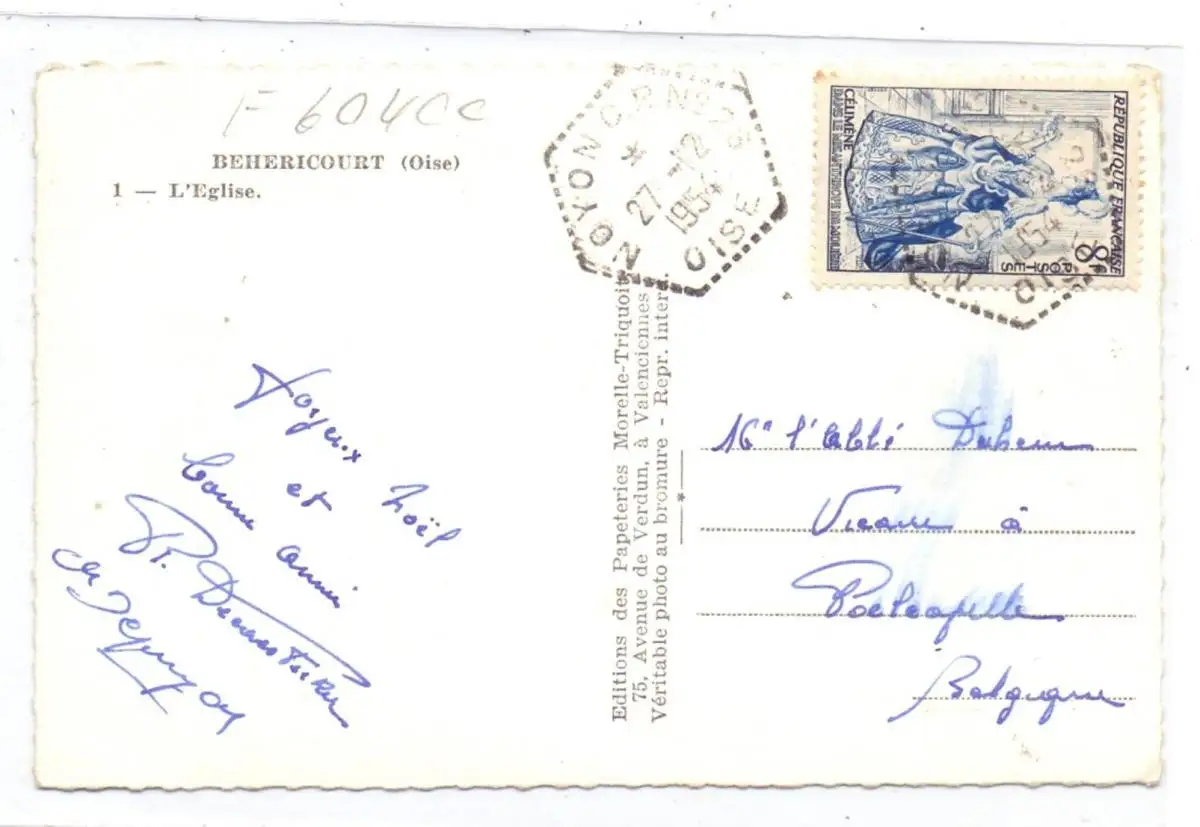 F 604CC
BEHERICOURT (Oise)
1 — L'Eglise.
NOYON
27 -12
1954
OISE
RÉPUBLIQUE FRANÇAISE
8F
POSTES
CÉLIMÈNE
DANS LE MISANTHROPE DE MOLIÈRE
27
1954
OISE
Editions des Papeteries Morelle-Triquoit
75, Avenue de Verdun, à Valenciennes
Véritable photo au bromure - Repr. inter.
Joyeux Noël
et
bonne année
P.
Mr l'abbé
Vicaire à
Poelcapelle
Belgique